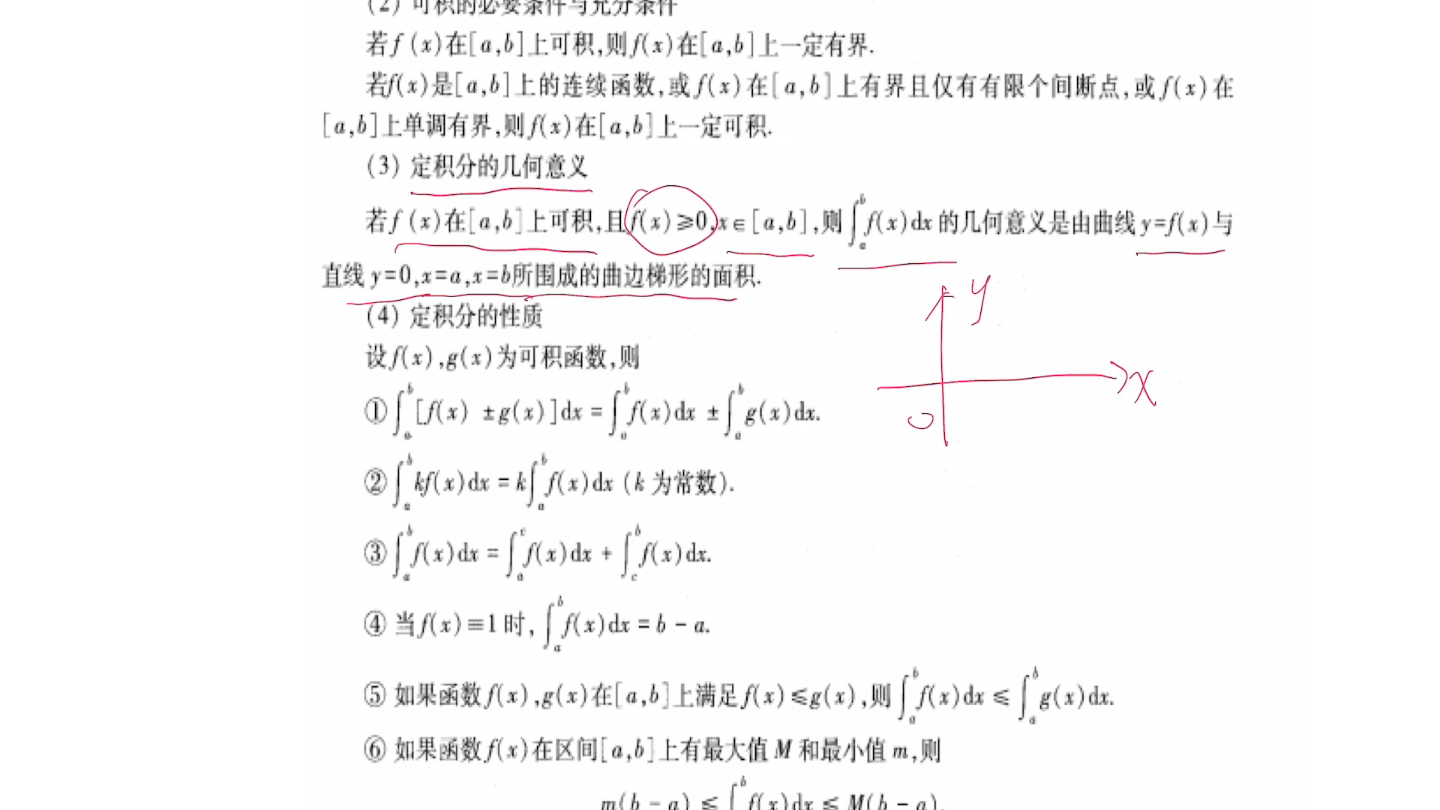 (2) 可积的必要条件与充分条件
若f(x)在[a,b]上可积,则f(x)在[a,b]上一定有界.
若f(x)是[a,b]上的连续函数,或f(x)在[a,b]上有界且仅有有限个间断点,或f(x)在
[a,b]上单调有界,则f(x)在[a,b]上一定可积.
(3) 定积分的几何意义
若f(x)在[a,b]上可积,且f(x)≥0,x∈[a,b],则∫_a^b f(x)dx的几何意义是由曲线y=f(x)与
直线y=0,x=a,x=b所围成的曲边梯形的面积.
y
x
O
(4) 定积分的性质
设f(x),g(x)为可积函数,则
①∫_a^b [f(x) ±g(x)]dx = ∫_a^b f(x)dx ± ∫_a^b g(x)dx.
②∫_a^b kf(x)dx = k∫_a^b f(x)dx (k 为常数).
③∫_a^b f(x)dx = ∫_a^c f(x)dx + ∫_c^b f(x)dx.
④ 当f(x)≡1时, ∫_a^b f(x)dx = b - a.
⑤ 如果函数f(x),g(x)在[a,b]上满足f(x)≤g(x),则∫_a^b f(x)dx ≤ ∫_a^b g(x)dx.
⑥ 如果函数f(x)在区间[a,b]上有最大值 M 和最小值 m,则
m(b - a) ≤ ∫_a^b f(x)dx ≤ M(b - a).